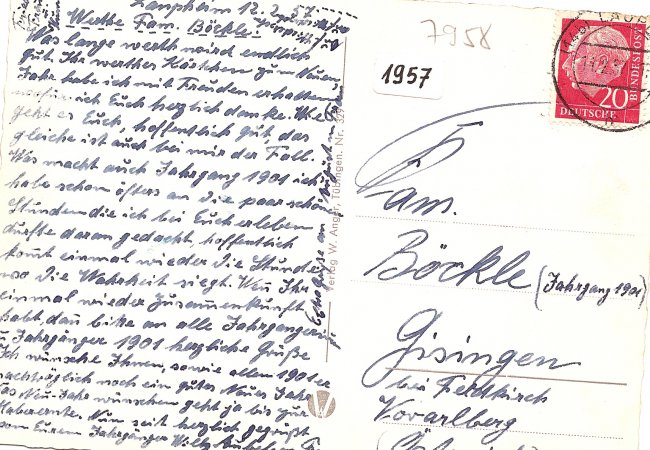 Laupheim 12.2.57
Werthe Fam. Böckle!
Was lange werth wird endlich
gut. Ihr werthes Kärtchen zum Neuen
Jahr habe ich mit Freuden erhalten
wofür ich Euch herzlich danke. Wie
geht es Euch, hoffentlich gut, das
gleiche ist auch bei mir der Fall.
Was macht auch Jahrgang 1901 ich
habe schon öfters an die paar schön
Stunden die ich bei Euch erleben
durfte daran gedacht, hoffentlich
komt einmal wieder die Stunde
wo die Wahrheit siegt. Wen Ihr
einmal wieder Zusammenkunft
habt, dan bitte an alle Jahrgänger
u Jahrgänger 1901 herzliche Grüße
Ich wünsche Ihnen, sowie allen 1901er
nachträglich noch ein gutes Neues Jahr
das Neu-Jahr wünschen geht ja bis zur
Haberernte. Nun seit herzlich gegrüßt
von Eurem Jahrgänger Willy
Extra Grüße an
Verlag W. Anger, Tübingen. Nr.
7958
1957
LAUP
20
DEUTSCHE
BUNDESPOST
Fam.
Böckle (Jahrgang 1901)
Gisingen
bei Feldkirch
Vorarlberg